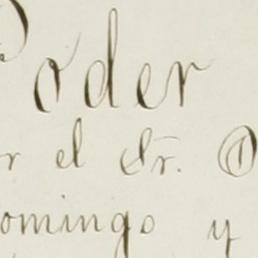 Poder
r el Sr. D
omingo y